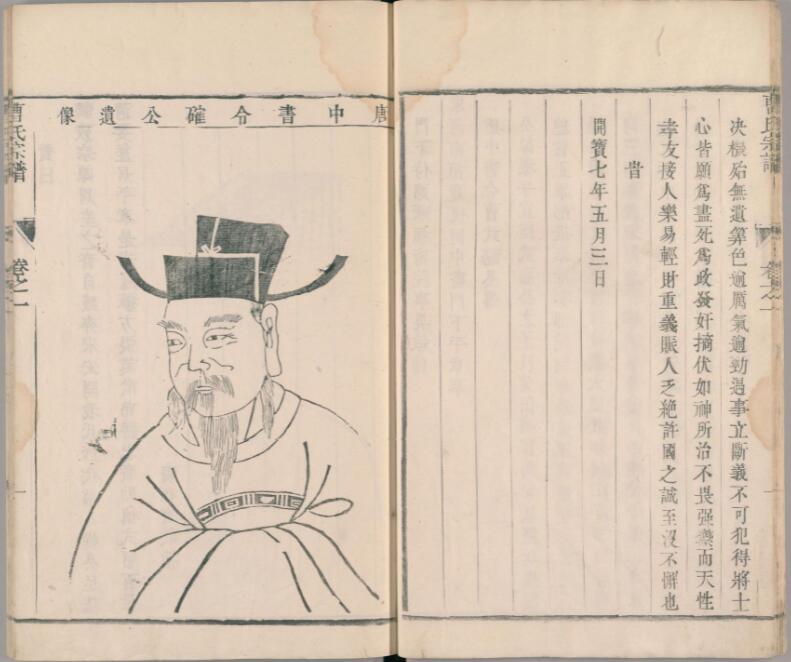 曹氏宗譜
卷之一
決機殆無遺筭色逾厲氣逾勁遇事立斷義不可犯得將士
心皆願為盡死為政發奸摘伏如神所治不畏强禦而天性
孝友接人樂易輕財重義賑人乏絶許國之誠至沒不懈也
昔
開寶七年五月三日
唐中書令確公遺像
曹氏宗譜
卷之一
一